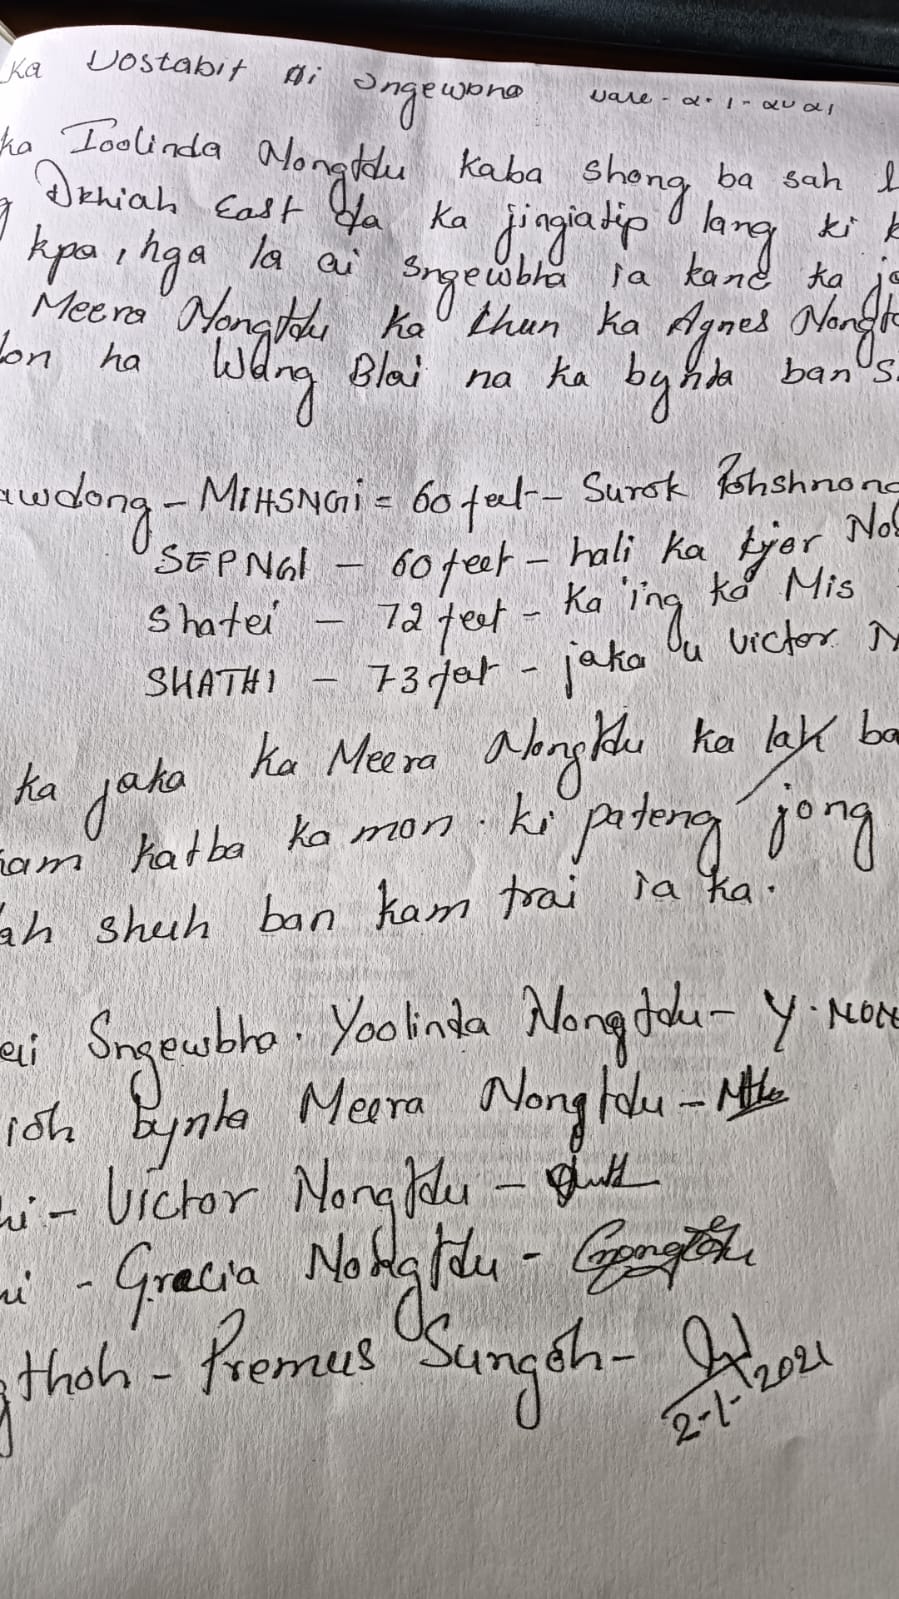 Ka Dostabit Ai Sngewbha Date - 2.1-2021
ka Ioolinda Nongtdu kaba shong ba sah
Dkhiah East da ka jingiatip lang ki
kpa, nga la ai sngewbha ia kane ka ja
Meera Nongtdu ka khun ka Agnes Nongt
ha Wang Blai na ka bynta ban s
awdong - MIHSNGI = 60 feet - Surok Pohshnong
SEPNGI - 60 feet - hali ka kjer No
Shatei - 72 feet - Ka 'ing ka Mis
SHATHI - 73 feet - jaka u Victor N
ka jaka ka Meera Nongtdu ka lah ba
kam katba ka mon. ki pateng jong
ah shuh ban kam trai ia ka.
ai Sngewbha. Yoolinda Nongtdu - Y. NON
ioh bynta Meera Nongtdu -
i - Victor Nongtdu -
i - Gracia Nongtdu - Gnongtdu
gthoh - Premus Sungoh -
2-1-2021